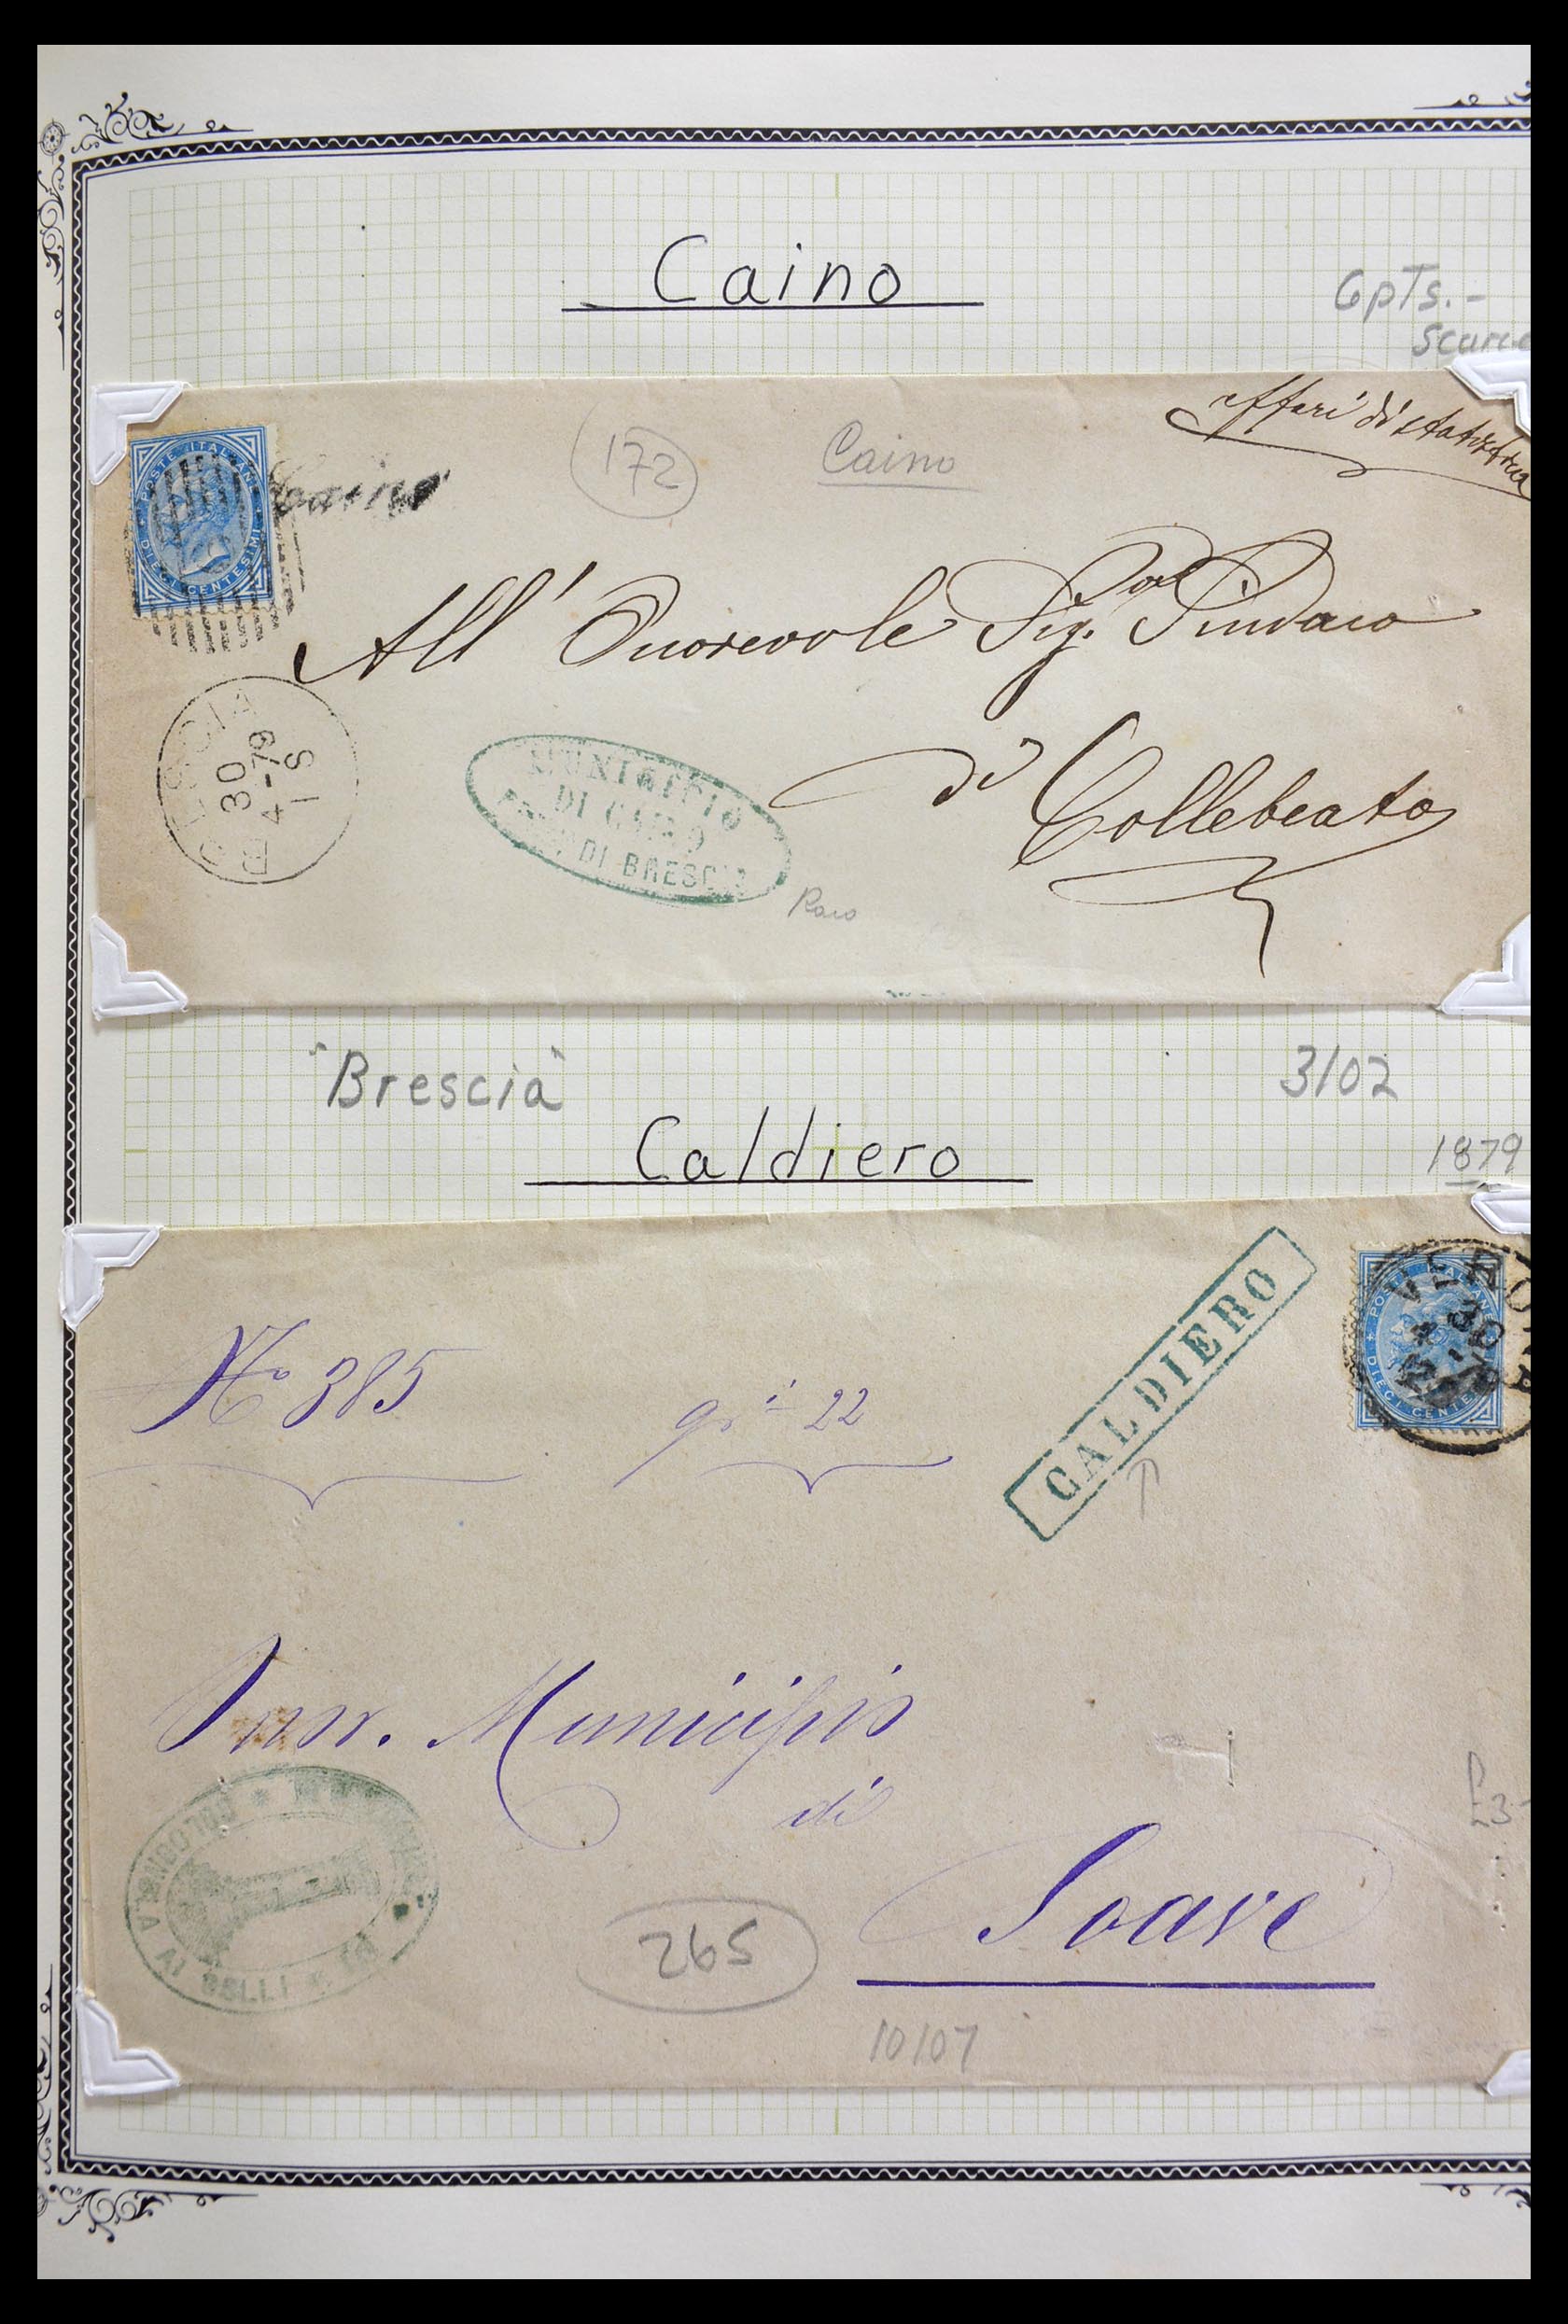 Caino
6pTs.-
Scarce
affari di statistica
172
Caino
POSTE ITALIANE
DIECI CENTESIMI
Caino
All' Onorevole Sig. Sindaco
di Collebeato
BRESCIA
30
4-79
1 S
MUNICIPIO
DI CAINO
DI BRESCIA
Raro
"Brescia"
3/02
Caldiero
1879
CALDIERO
VERONA
POSTE ITALIANE
DIECI CENTE
No 385
22
Municipio
di
Soave
COLOGNOLA AI COLLI
£3-
265
10/07